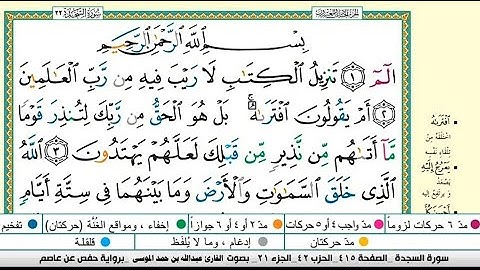 سورة السجدة ٣٢
بِسْمِ اللَّهِ الرَّحْمَٰنِ الرَّحِيمِ
الٓمٓ ١ تَنزِيلُ الْكِتَابِ لَا رَيْبَ فِيهِ مِن رَّبِّ الْعَالَمِينَ
٢ أَمْ يَقُولُونَ افْتَرَاهُ ۚ بَلْ هُوَ الْحَقُّ مِن رَّبِّكَ لِتُنذِرَ قَوْمًا
مَّا أَتَاهُم مِّن نَّذِيرٍ مِّن قَبْلِكَ لَعَلَّهُمْ يَهْتَدُونَ ٣ اللَّهُ
الَّذِي خَلَقَ السَّمَاوَاتِ وَالْأَرْضَ وَمَا بَيْنَهُمَا فِي سِتَّةِ أَيَّامٍ
افْتَرَاهُ
يَعْرُجُ إِلَيْهِ
مدّ ٦ حركات لزوماً
مدّ واجب ٤ أو ٥ حركات
مدّ ٢ أو ٤ أو ٦ جوازاً
إخفاء، ومواقع الغُنَّة (حركتان)
تفخيم
مدّ حركتان
إدغام، وما لا يُلفَظ
قلقلة
سورة السجدة _ الصفحة ٤١٥ _ الحزب ٤٢ _ الجزء ٢١ _ بصوت القارئ عبدالله بن حمد الموسى _ برواية حفص عن عاصم